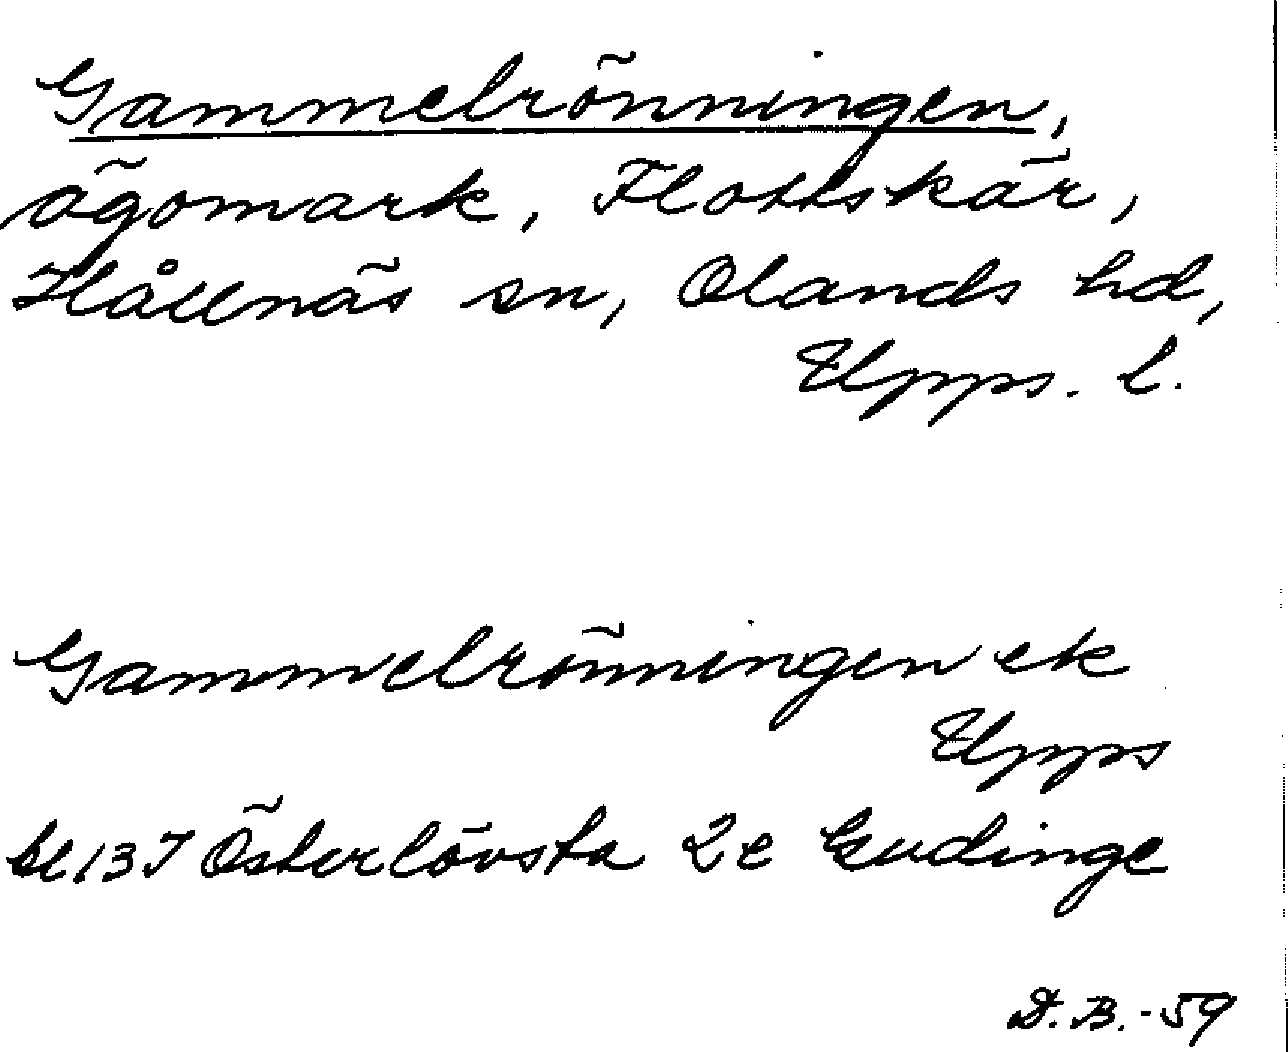 Gammelrönningen,
ägomark, Flottskär,
Hållnäs sn, Olands hd,
Upps. l.
Gammelrönningen ek
Upps
bl 13 I Österlövsta 2e Gudinge
D.B.-59